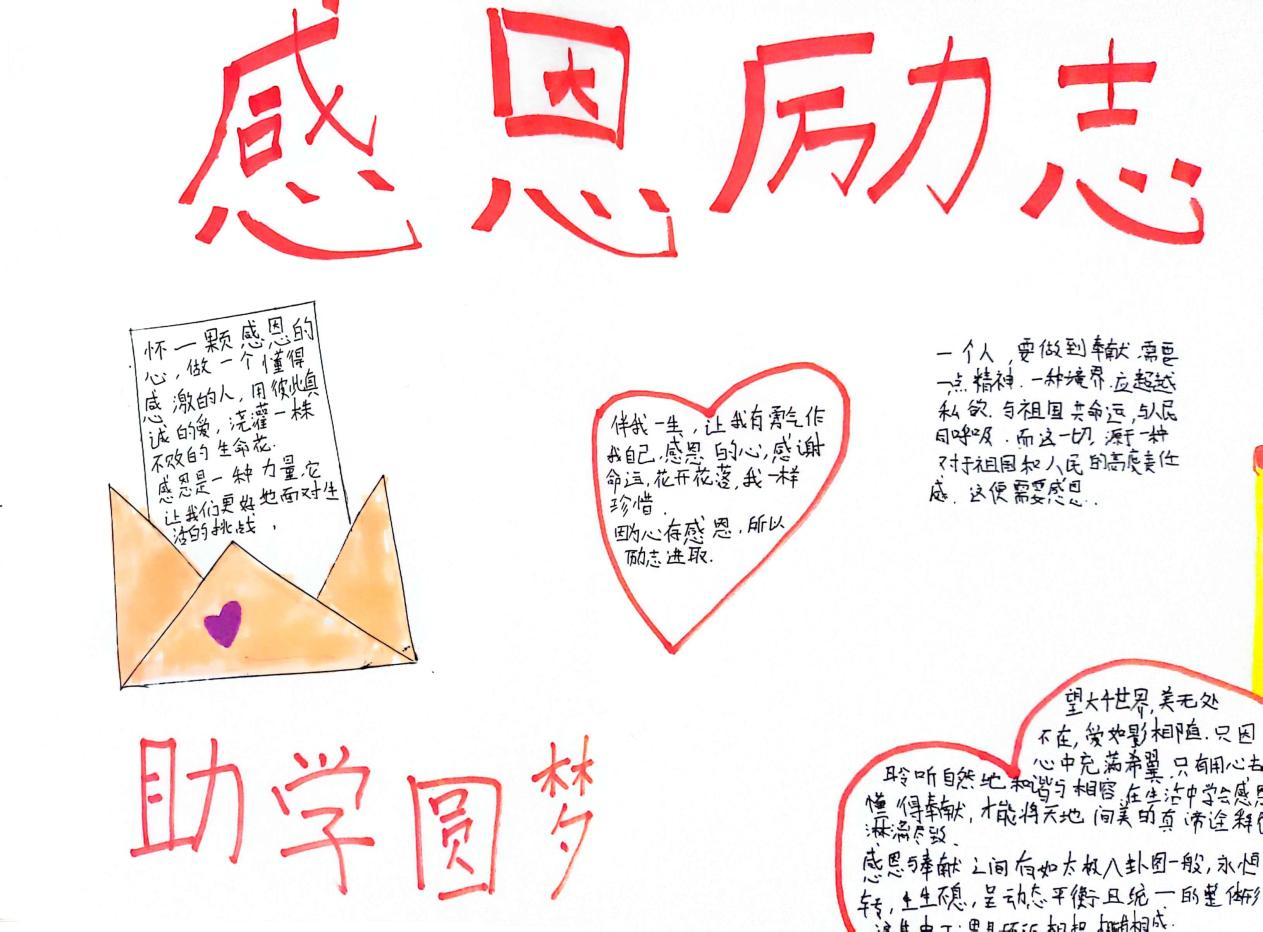 感恩励志
怀一颗感恩的
心，做一个懂得
感激的人，用彼此真
诚的爱，浇灌一株
不败的生命花.
感恩是一种力量,它
让我们更好地面对生
活的挑战，
伴我一生，让我有勇气作
我自己,感恩的心,感谢
命运,花开花落,我一样
珍惜.
因为心存感恩.所以
励志进取.
一个人,要做到奉献.需要
一点精神.一种境界.应超越
私欲.与祖国共命运,与人民
同呼吸.而这一切,源于一种
对于祖国和人民的高度责任
感.这便需要感恩.
助学圆梦
望大千世界,美无处
不在,爱如影相随.只因
心中充满希翼.只有用心去
聆听自然地和谐与相容,在生活中学会感恩
懂得奉献,才能将天地间美的真谛诠释
淋漓尽致.
感恩与奉献之间有如太极八卦图一般,永恒
转,生生不息,呈动态平衡且统一的整体形